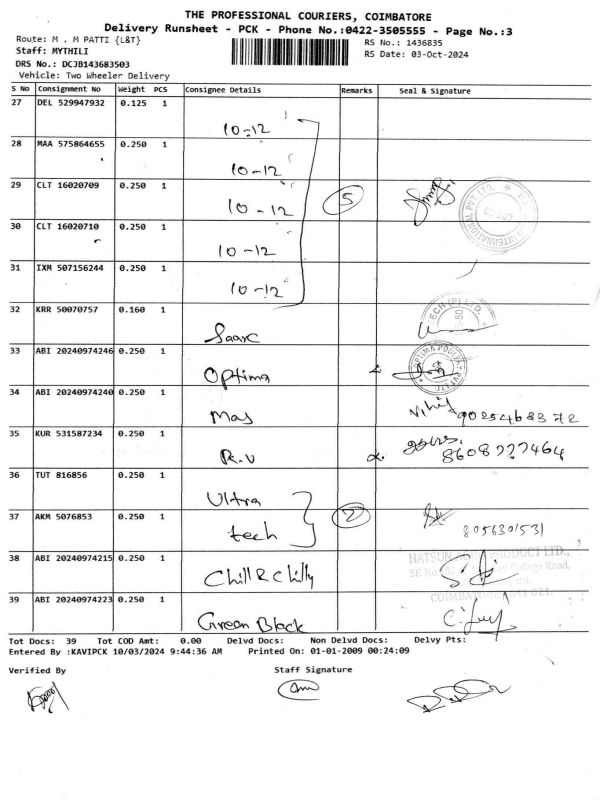 THE PROFESSIONAL COURIERS, COIMBATORE
Delivery Runsheet - PCK - Phone No.:0422-3505555 - Page No.:3
Route: M . M PATTI {L&T}
RS No.: 1436835
Staff: MYTHILI
RS Date: 03-Oct-2024
DRS No.: DCJB143683503
Vehicle: Two Wheeler Delivery
S No Consignment No Weight PCS Consignee Details Remarks Seal & Signature
27 DEL 529947932 0.125 1
10-12
28 MAA 575864655 0.250 1
10-12
29 CLT 16020709 0.250 1
10-12 5
30 CLT 16020710 0.250 1
10-12
31 IXM 507156244 0.250 1
10-12
32 KRR 50070757 0.160 1
Saarc
33 ABI 20240974246 0.250 1
Optima
34 ABI 20240974240 0.250 1
Mas 9025468372
35 KUR 531587234 0.250 1
R.V 8608222464
36 TUT 816856 0.250 1
Ultra
37 AKM 5076853 0.250 1 2
tech 8056301531
38 ABI 20240974215 0.250 1
HATSUN PRODUCT LTD.,
College Road,
Chill & Chilly
COIMBATORE 641 021.
39 ABI 20240974223 0.250 1
Green Block
Tot Docs: 39 Tot COD Amt: 0.00 Delvd Docs: Non Delvd Docs: Delvy Pts:
Entered By :KAVIPCK 10/03/2024 9:44:36 AM Printed On: 01-01-2009 00:24:09
Verified By Staff Signature